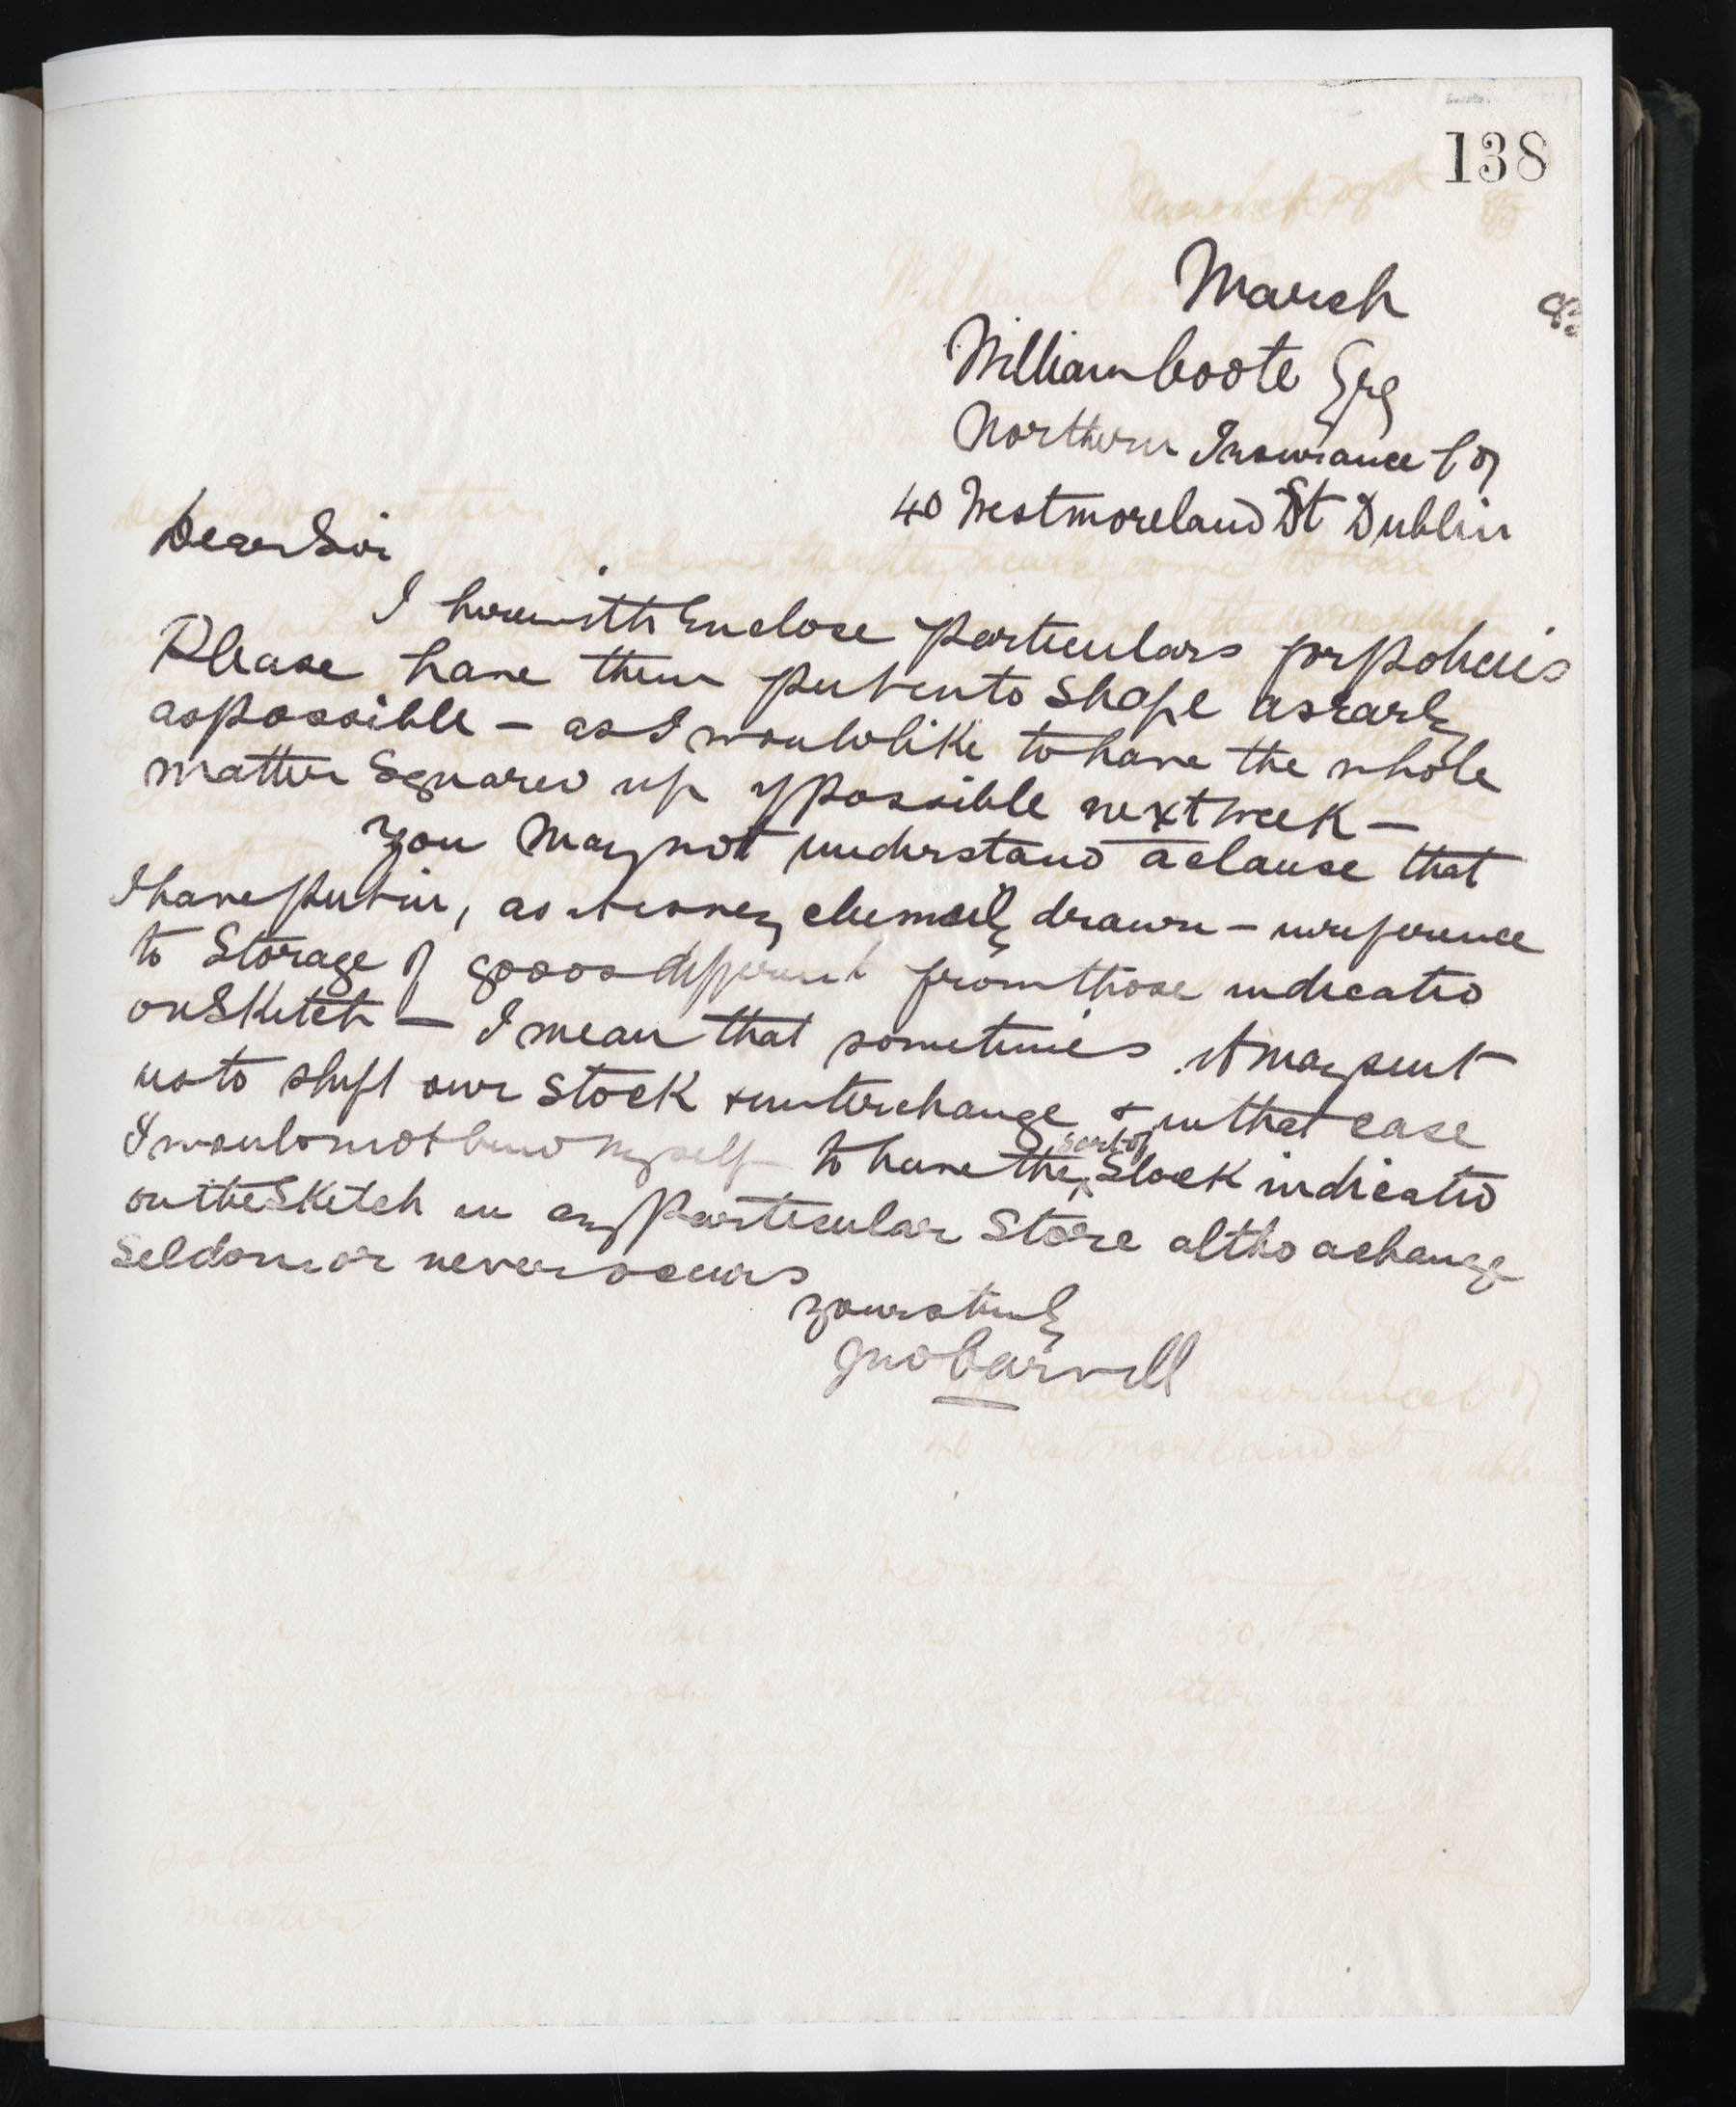 138
March
William Coote Esq
Northern Insurance Coy
40 Westmoreland St Dublin
Dear Sir
I herewith Enclose particulars for policies
Please have them put into Shape as early
as possible — as I would like to have the whole
matter Squared up if possible next week —
You May not understand a clause that
I have put in, as it is very clumsily drawn — in reference
to Storage of goods different from those indicated
on Sketch — I mean that sometimes it may suit
us to shift our Stock & interchange & in that case
I would not bind myself to have the sort of Stock indicated
on the Sketch in any Particular Store altho a change
Seldom or never occurs
Yours truly
Jno Carvill